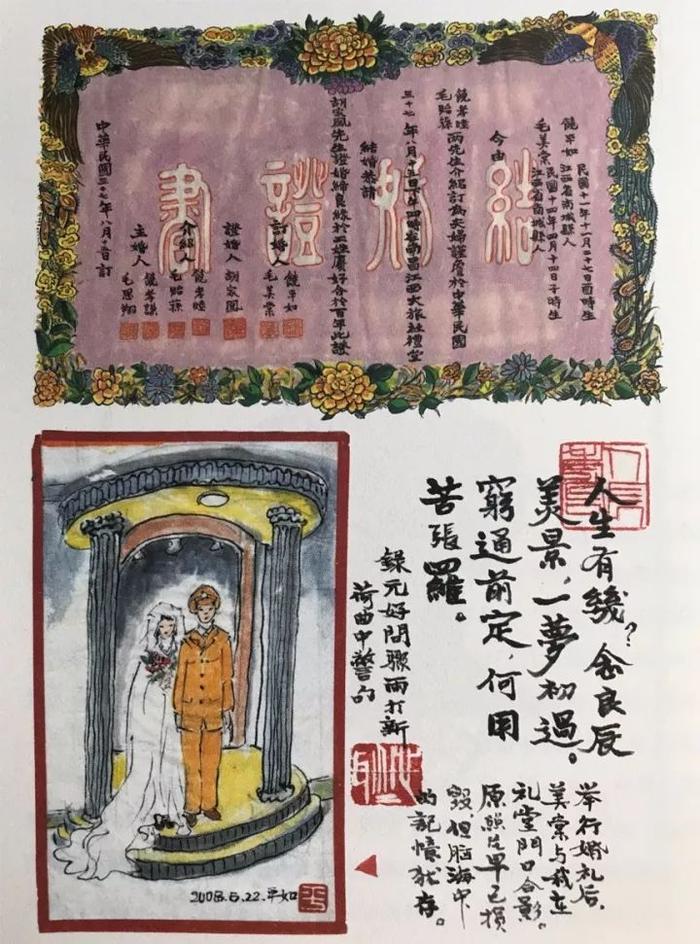 結婚證書
饒平如 江西省南城縣人
民國十一年十一月二十七日酉時生
毛美棠 江西省南城縣人
民國十四年四月十四日子時生
今由
饒孝睦
毛貽蓀
兩先生介紹訂為夫婦謹詹於中華民國
三十七年八月十五日下午四時在南昌江西大旅社禮堂
結婚恭請
胡家鳳先生證婚締良緣於二姓賡好合於百年此證
訂婚人 饒平如
毛美棠
證婚人 胡家鳳
介紹人 饒孝睦
毛貽蓀
主婚人 饒孝謙
毛思翔
中華民國三十七年八月十五日訂
人生有幾？念良辰
美景，一夢初過。
窮通前定，何用
苦張羅。
錄元好問驟雨打新
荷曲中警句
举行婚礼后，
美棠与我立
礼堂門口合影。
原照片早已損
毁，但脑海中
的記憶犹存。
2008.6.22.平如